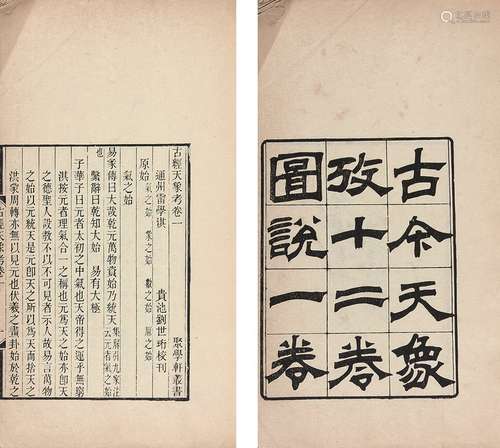 古今天象
攷十二卷
圖說一卷
古經天象考卷一 聚學軒叢書
通州雷學淇 貴池劉世珩校刊
原始 氣之始 象之始 數之始
氣之始
易彖傳曰大哉乾元萬物資始乃統天 集解引九家注云元者氣之始
也
繫辭曰乾知大始 易有太極
子華子曰元者太初之中氣也天帝得之運乎無窮
淇按元者理氣合一之稱也元爲天之始亦卽天
之德聖人言天不以不可見者示人故易言萬物
之始以元統天是元卽天之所以爲天而捨天之
洪象周轉亦無以見元也伏羲之畫卦始於乾之